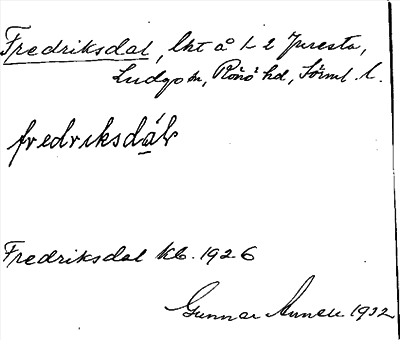 Fredriksdal, lht å 1-2 Juresta,
Ludgo sn, Rönö hd, Sörml. l.
fredriksdál
Fredriksdal kb. 1926
Gunnar 1932